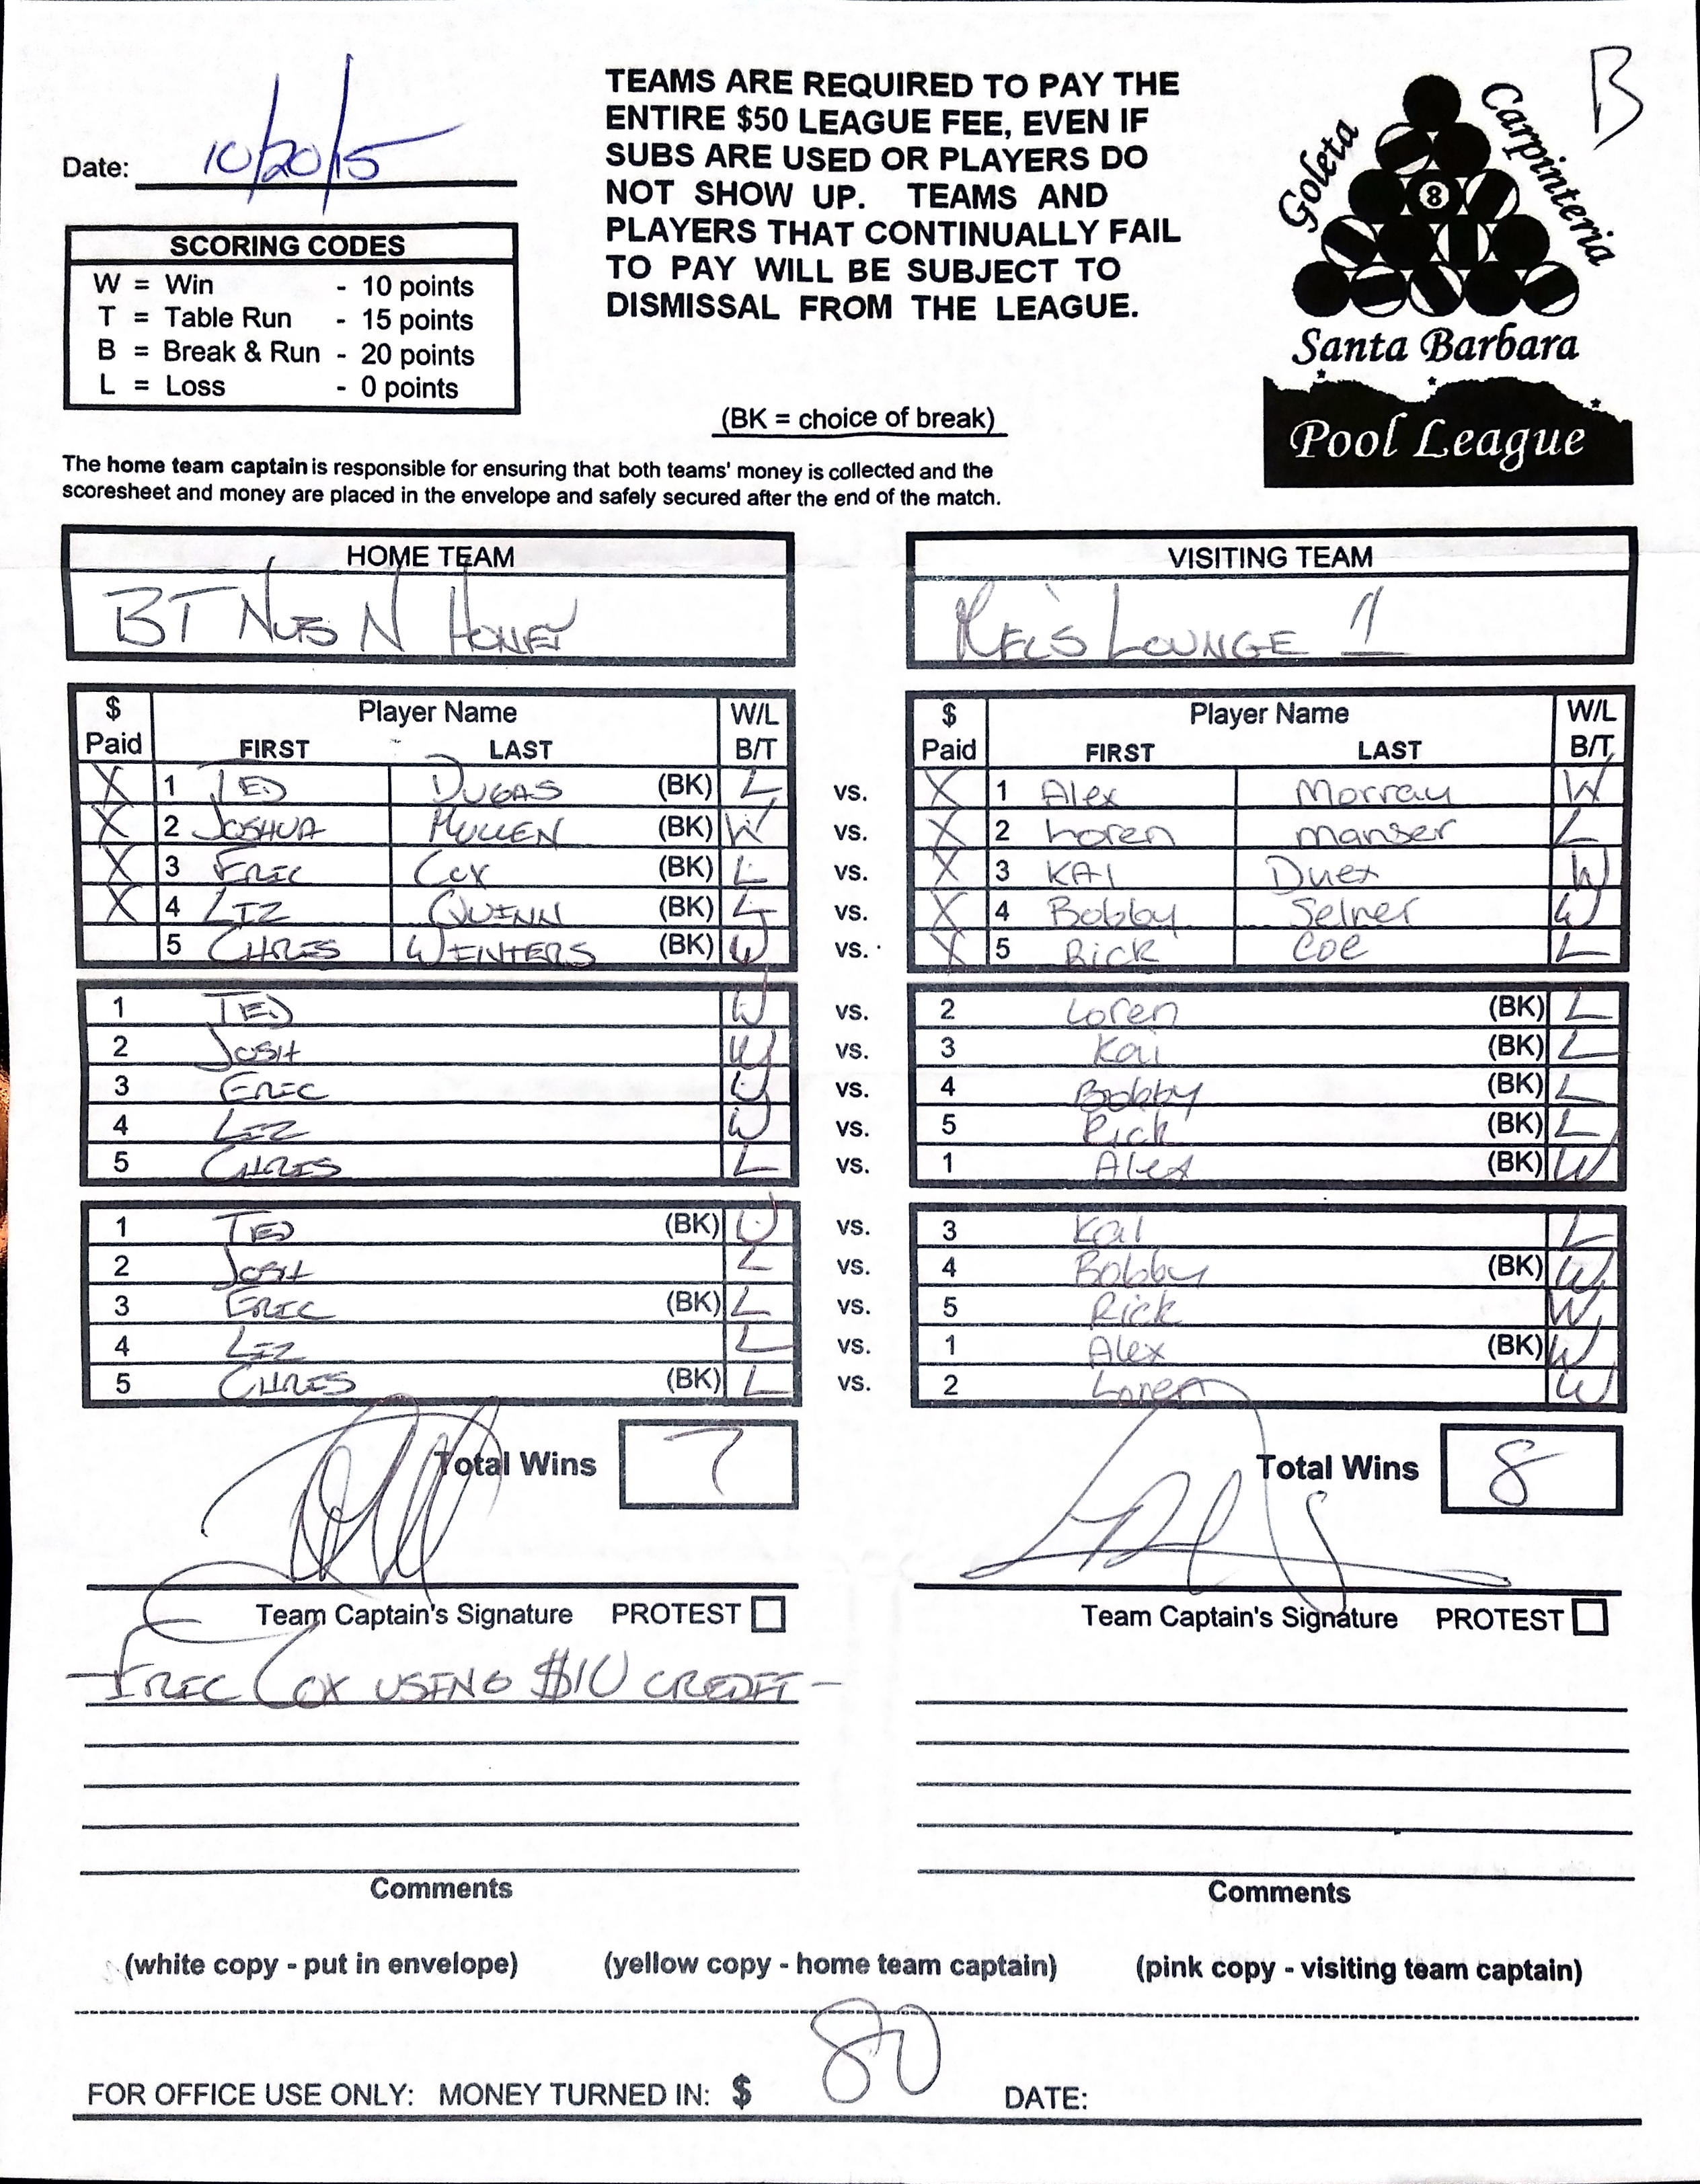 B
Date: 10/20/15
TEAMS ARE REQUIRED TO PAY THE
ENTIRE $50 LEAGUE FEE, EVEN IF
SUBS ARE USED OR PLAYERS DO
NOT SHOW UP. TEAMS AND
PLAYERS THAT CONTINUALLY FAIL
TO PAY WILL BE SUBJECT TO
DISMISSAL FROM THE LEAGUE.
Goleta
Carpinteria
8
Santa Barbara
Pool League
SCORING CODES
W = Win - 10 points
T = Table Run - 15 points
B = Break & Run - 20 points
L = Loss - 0 points
(BK = choice of break)
The home team captain is responsible for ensuring that both teams' money is collected and the
scoresheet and money are placed in the envelope and safely secured after the end of the match.
HOME TEAM VISITING TEAM
BT NUTS N HONEY MEL'S LOUNGE 1
$ Player Name W/L $ Player Name W/L
Paid FIRST LAST B/T Paid FIRST LAST B/T
X 1 TED DUGAS (BK) L vs. X 1 Alex Morray W
X 2 JOSHUA MULLEN (BK) W vs. X 2 Loren manser L
X 3 ERIC COX (BK) L vs. X 3 KAI Duex W
X 4 LIZ QUINN (BK) L vs. X 4 Bobby Selner W
5 CHRIS WEINTERS (BK) W vs. X 5 Rick Coe L
1 TED W vs. 2 Loren (BK) L
2 JOSH W vs. 3 Kai (BK) L
3 ERIC W vs. 4 Bobby (BK) L
4 LIZ W vs. 5 Rick (BK) L
5 CHRIS L vs. 1 Alex (BK) W
1 TED (BK) W vs. 3 Kai L
2 JOSH L vs. 4 Bobby (BK) W
3 ERIC (BK) L vs. 5 Rick W
4 LIZ L vs. 1 Alex (BK) W
5 CHRIS (BK) L vs. 2 Loren W
Total Wins 7 Total Wins 8
Team Captain's Signature PROTEST Team Captain's Signature PROTEST
- ERIC COX USING $10 CREDIT -
Comments Comments
(white copy - put in envelope) (yellow copy - home team captain) (pink copy - visiting team captain)
FOR OFFICE USE ONLY: MONEY TURNED IN: $ 80 DATE: